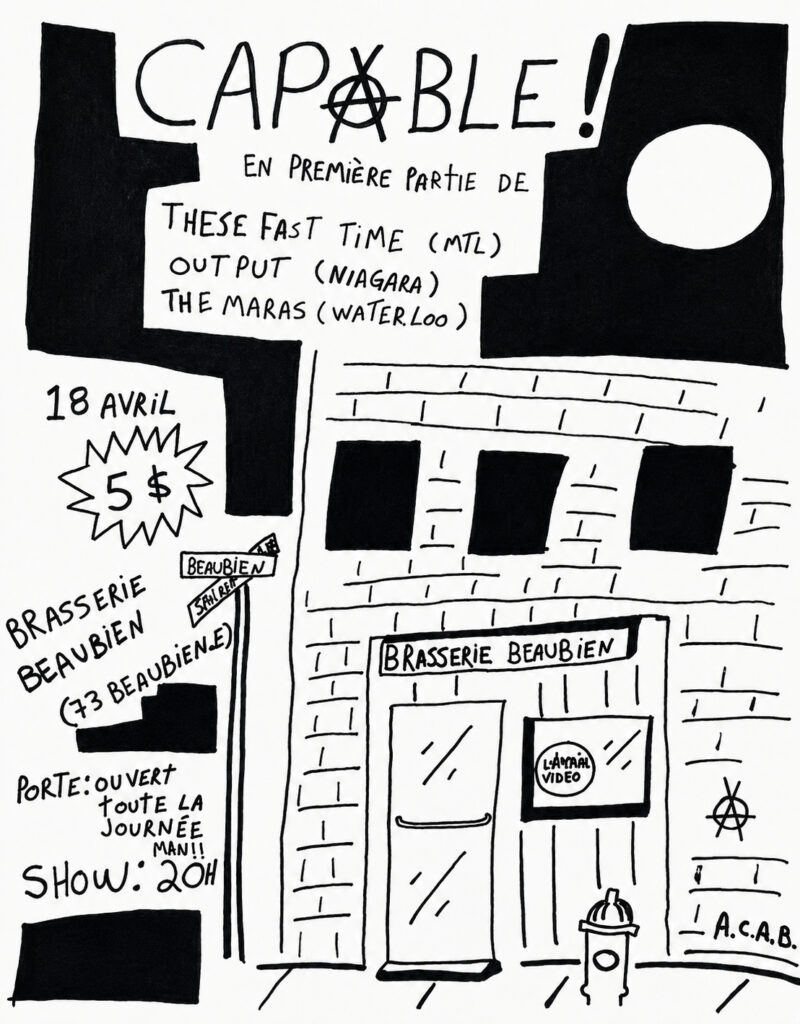 CAPABLE!
EN PREMIÈRE PARTIE DE
THESE FAST TIME (MTL)
OUTPUT (NIAGARA)
THE MARAS (WATERLOO)
18 AVRIL
5 $
BEAUBIEN
BRASSERIE
BEAUBIEN
(73 BEAUBIEN.E)
BRASSERIE BEAUBIEN
VIDEO
PORTE: OUVERT
TOUTE LA
JOURNÉE
MAN!!
SHOW: 20H
A.C.A.B.